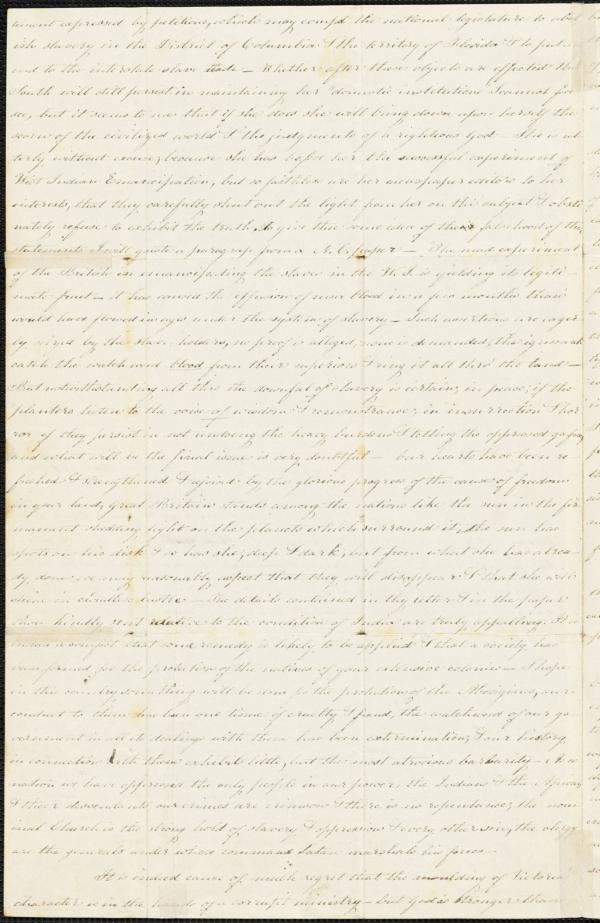 ment expressed by petitions, which may compel the national legislature to abol
ish slavery in the District of Columbia & the territory of Florida & to put an
end to the interstate slave trade — Whether after these objects are effected the
South will still persist in maintaining her "domestic institutions" I cannot fore
see, but it seems to me that if she does she will bring down upon herself the
scorn of the civilized world & the judgments of a righteous God — She is ut
terly without excuse, because she has before her the successful experiment of
West Indian Emancipation, but so faithless are her newspaper editors to her
interests, that they carefully shut out the light from her on this subject & obsti
nately refuse to exhibit the truth. To give thee some idea of the falsehood of their
statements I will quote a paragraph from a N. C. paper — "The mad experiment
of the British in emancipating the slaves in the W. I. is yielding its legiti-
mate fruit — it has caused the effusion of more blood in a few months than
would have flowed in ages under the system of slavery — Such assertions are eager
ly seized by the slave holders, no proof is alleged, none is demanded, the ignorant
catch the watch word blood from their superiors & ring it all thro' the land —
But notwithstanding all this the downfal of slavery is certain; in peace, if the
planters listen to the voice of wisdom & remonstrance; in insurrection & hor
ror if they persist in not undoing the heavy burdens & letting the oppressed go free,
and what will be the final issue is very doubtful — Our hearts have been re
freshed & strengthened & rejoiced by the glorious progress of the cause of freedom
in your land, Great Britain stands among the nations like the sun in the fir
mament shedding light on the planets which surround it, the sun has
spots on his disk & so has she, deep & dark, but from what she has alrea-
dy done, we may reasonably expect that they will disappear & that she will
shine in cloudless lustre — The details contained in thy letter & in the paper
thou kindly sent relative to the condition of India are truly appalling. It is
indeed a comfort that some remedy is likely to be applied & that a society has
been formed for the protection of the natives of your extensive colonies — I hope
in this country something will be done for the protection of the Aborigines, our
conduct to them has been one tissue of cruelty & fraud, the watchword of our go
vernment in all its dealings with them has been extermination, & our history
in connection with them exhibits little, but the most atrocious barbarity — As a
nation we have oppressed the only people in our power, the Indians & the African
& their descendants, our crimes are crimson & there is no repentance; the nom
inal Church is the strong hold of slavery & oppression & every other sin, the clergy
are the generals under whose command Satan marshals his forces —
It is indeed cause of much regret that the moulding of Victoria's
character is in the hands of a corrupt ministry — but God is stronger than